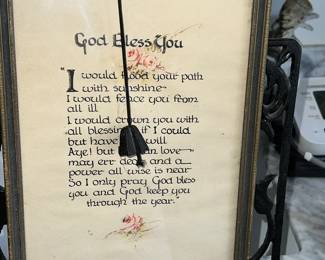 God Bless You
"I would flood your path
with sunshine
I would fence you from
all ill
I would crown you with
all blessing if I could
but have will
Aye! but love
may err dear and a
power all wise is near
So I only pray God bless
you and God keep you
through the year."